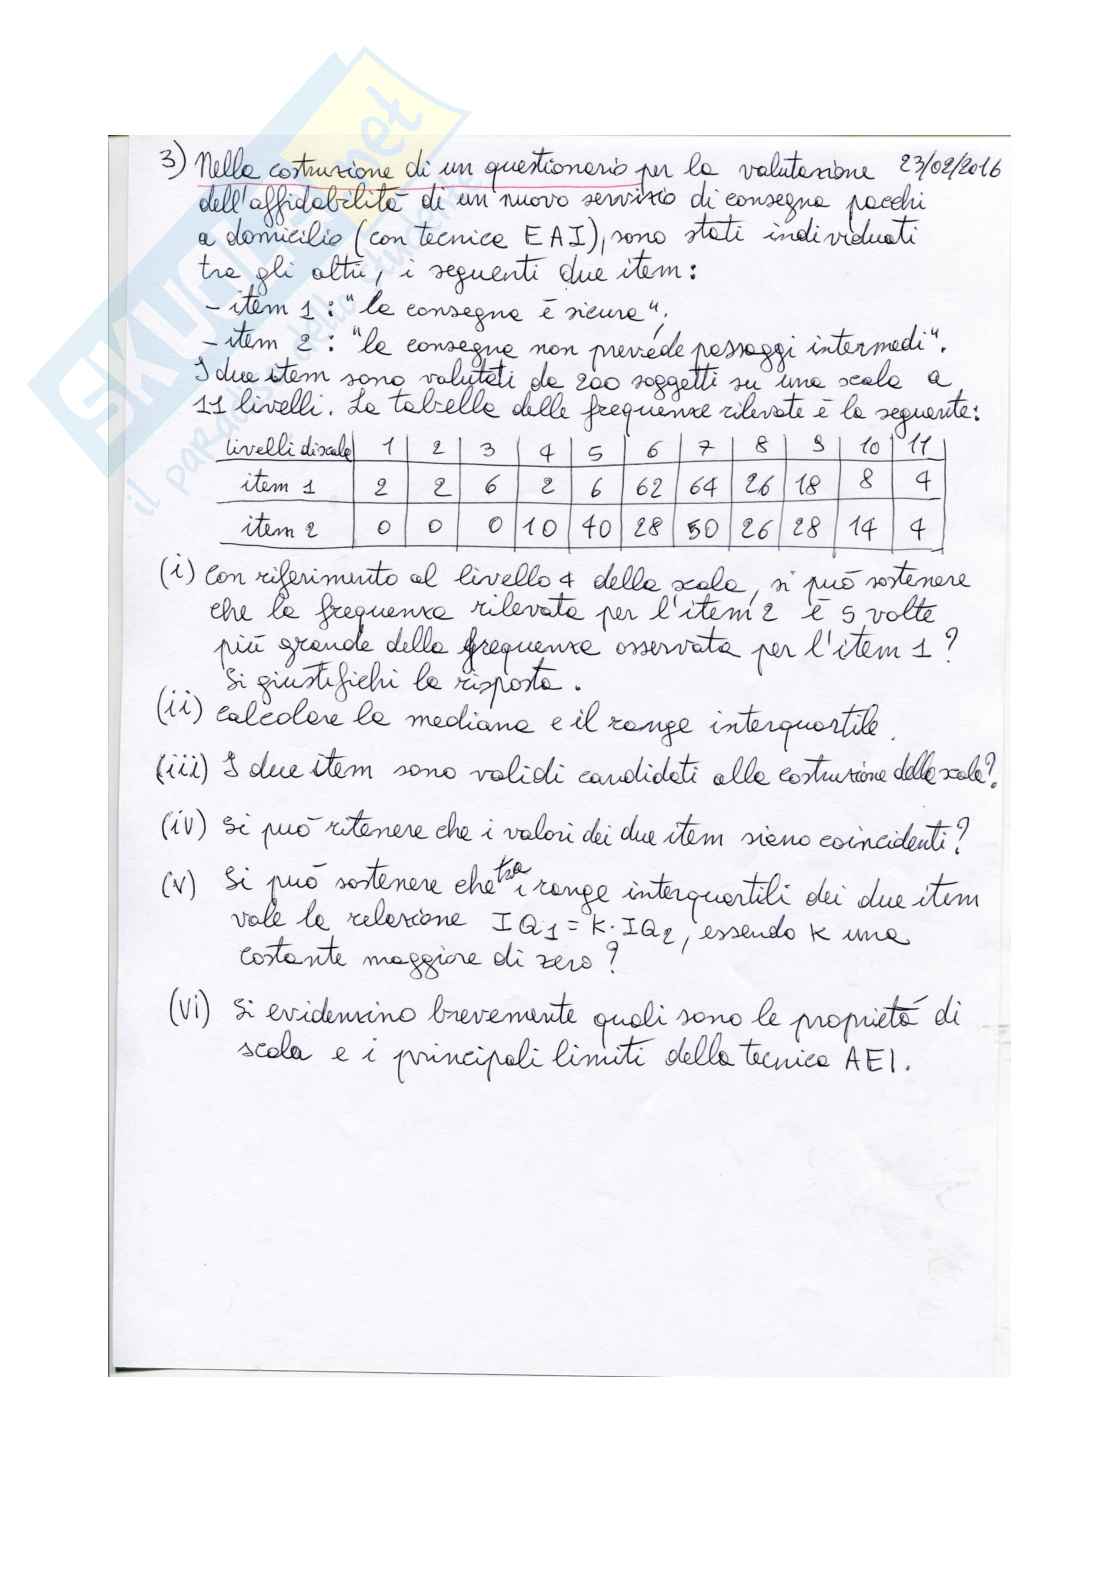 3) Nella costruzione di un questionario per la valutazione 23/02/2016
dell'affidabilità di un nuovo servizio di consegna pacchi
a domicilio (con tecnica EAI), sono stati individuati
tra gli altri, i seguenti due item:
- item 1 : "la consegna è sicura";
- item 2 : "la consegna non prevede passaggi intermedi".
I due item sono valutati da 200 soggetti su una scala a
11 livelli. La tabella delle frequenze rilevate è la seguente:
livelli di scala 1 2 3 4 5 6 7 8 9 10 11
item 1 2 2 6 2 6 62 64 26 18 8 4
item 2 0 0 0 10 40 28 50 26 28 14 4
(i) Con riferimento al livello 4 della scala, si può sostenere
che la frequenza rilevata per l'item 2 è 5 volte
più grande della frequenza osservata per l'item 1 ?
Si giustifichi la risposta.
(ii) Calcolare la mediana e il range interquartile.
(iii) I due item sono validi candidati alla costruzione della scala?
(iv) Si può ritenere che i valori dei due item siano coincidenti?
(v) Si può sostenere che tra i range interquartili dei due item
vale la relazione IQ1 = K · IQ2, essendo K una
costante maggiore di zero ?
(vi) Si evidenzino brevemente quali sono le proprietà di
scala e i principali limiti della tecnica AEI.
SKUOLA.net
il paradiso dello studente